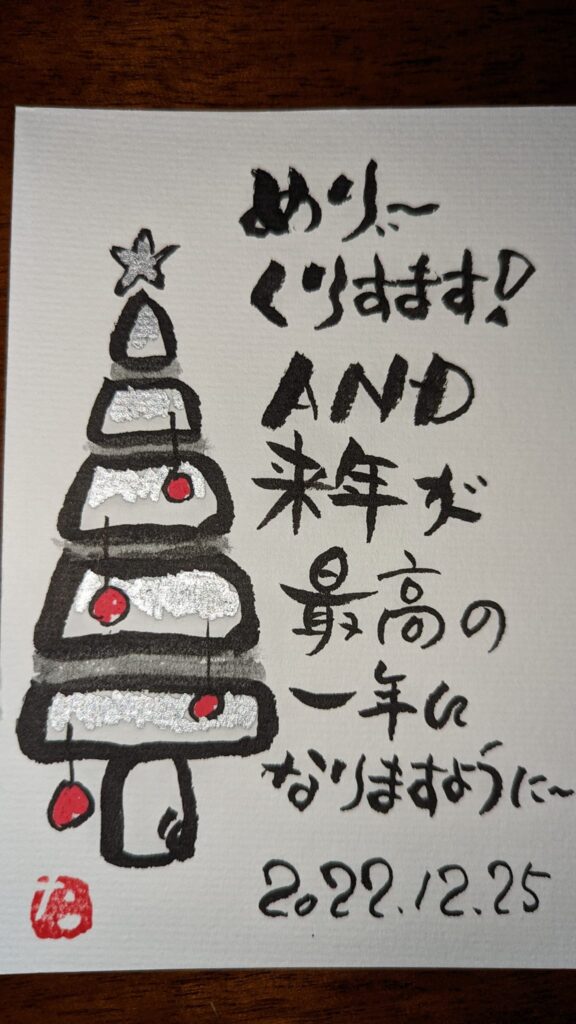 めりぃ〜
くりすます!
AND
来年が
最高の
一年に
なりますように〜
2022.12.25